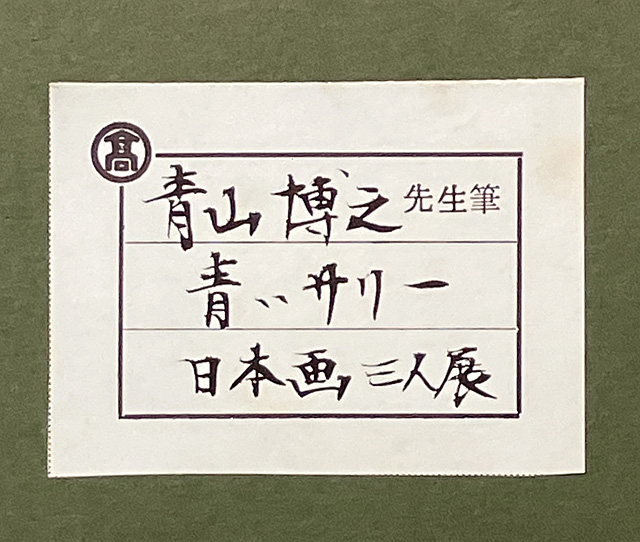 髙
青山博之先生筆
青いサリー
日本画三人展